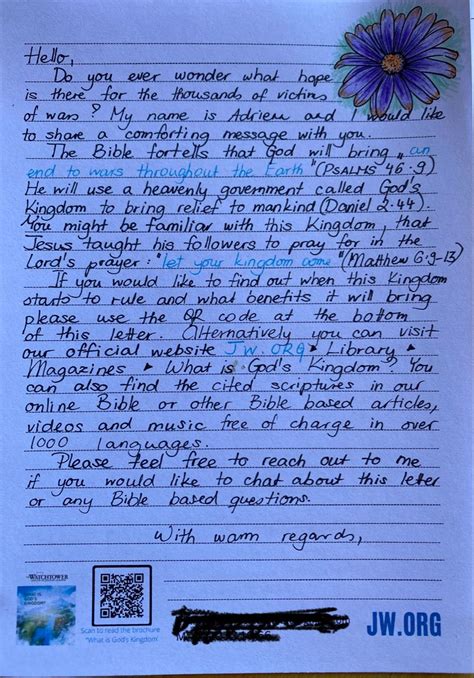 Hello,
Do you ever wonder what hope
is there for the thousands of victims
of wars? My name is Adriene and I would like
to share a comforting message with you.
The Bible fortells that God will bring „an
end to wars throughout the Earth" (PSALMS 46:9)
He will use a heavenly government called God's
Kingdom to bring relief to mankind (Daniel 2:44).
You might be familiar with this Kingdom, that
Jesus taught his followers to pray for in the
Lord's prayer: "let your kingdom come" (Matthew 6:9-13)
If you would like to find out when this Kingdom
starts to rule and what benefits it will bring
please use the QR code at the bottom
of this letter. Alternatively you can visit
our official website JW.ORG ▸ Library ▸
Magazines ▸ What is God's Kingdom? You
can also find the cited scriptures in our
online Bible or other Bible based articles,
videos and music free of charge in over
1000 languages.
Please feel free to reach out to me
if you would like to chat about this letter
or any Bible based questions.
With warm regards,
WATCHTOWER
Scan to read the brochure
"What is God's Kingdom"
JW.ORG